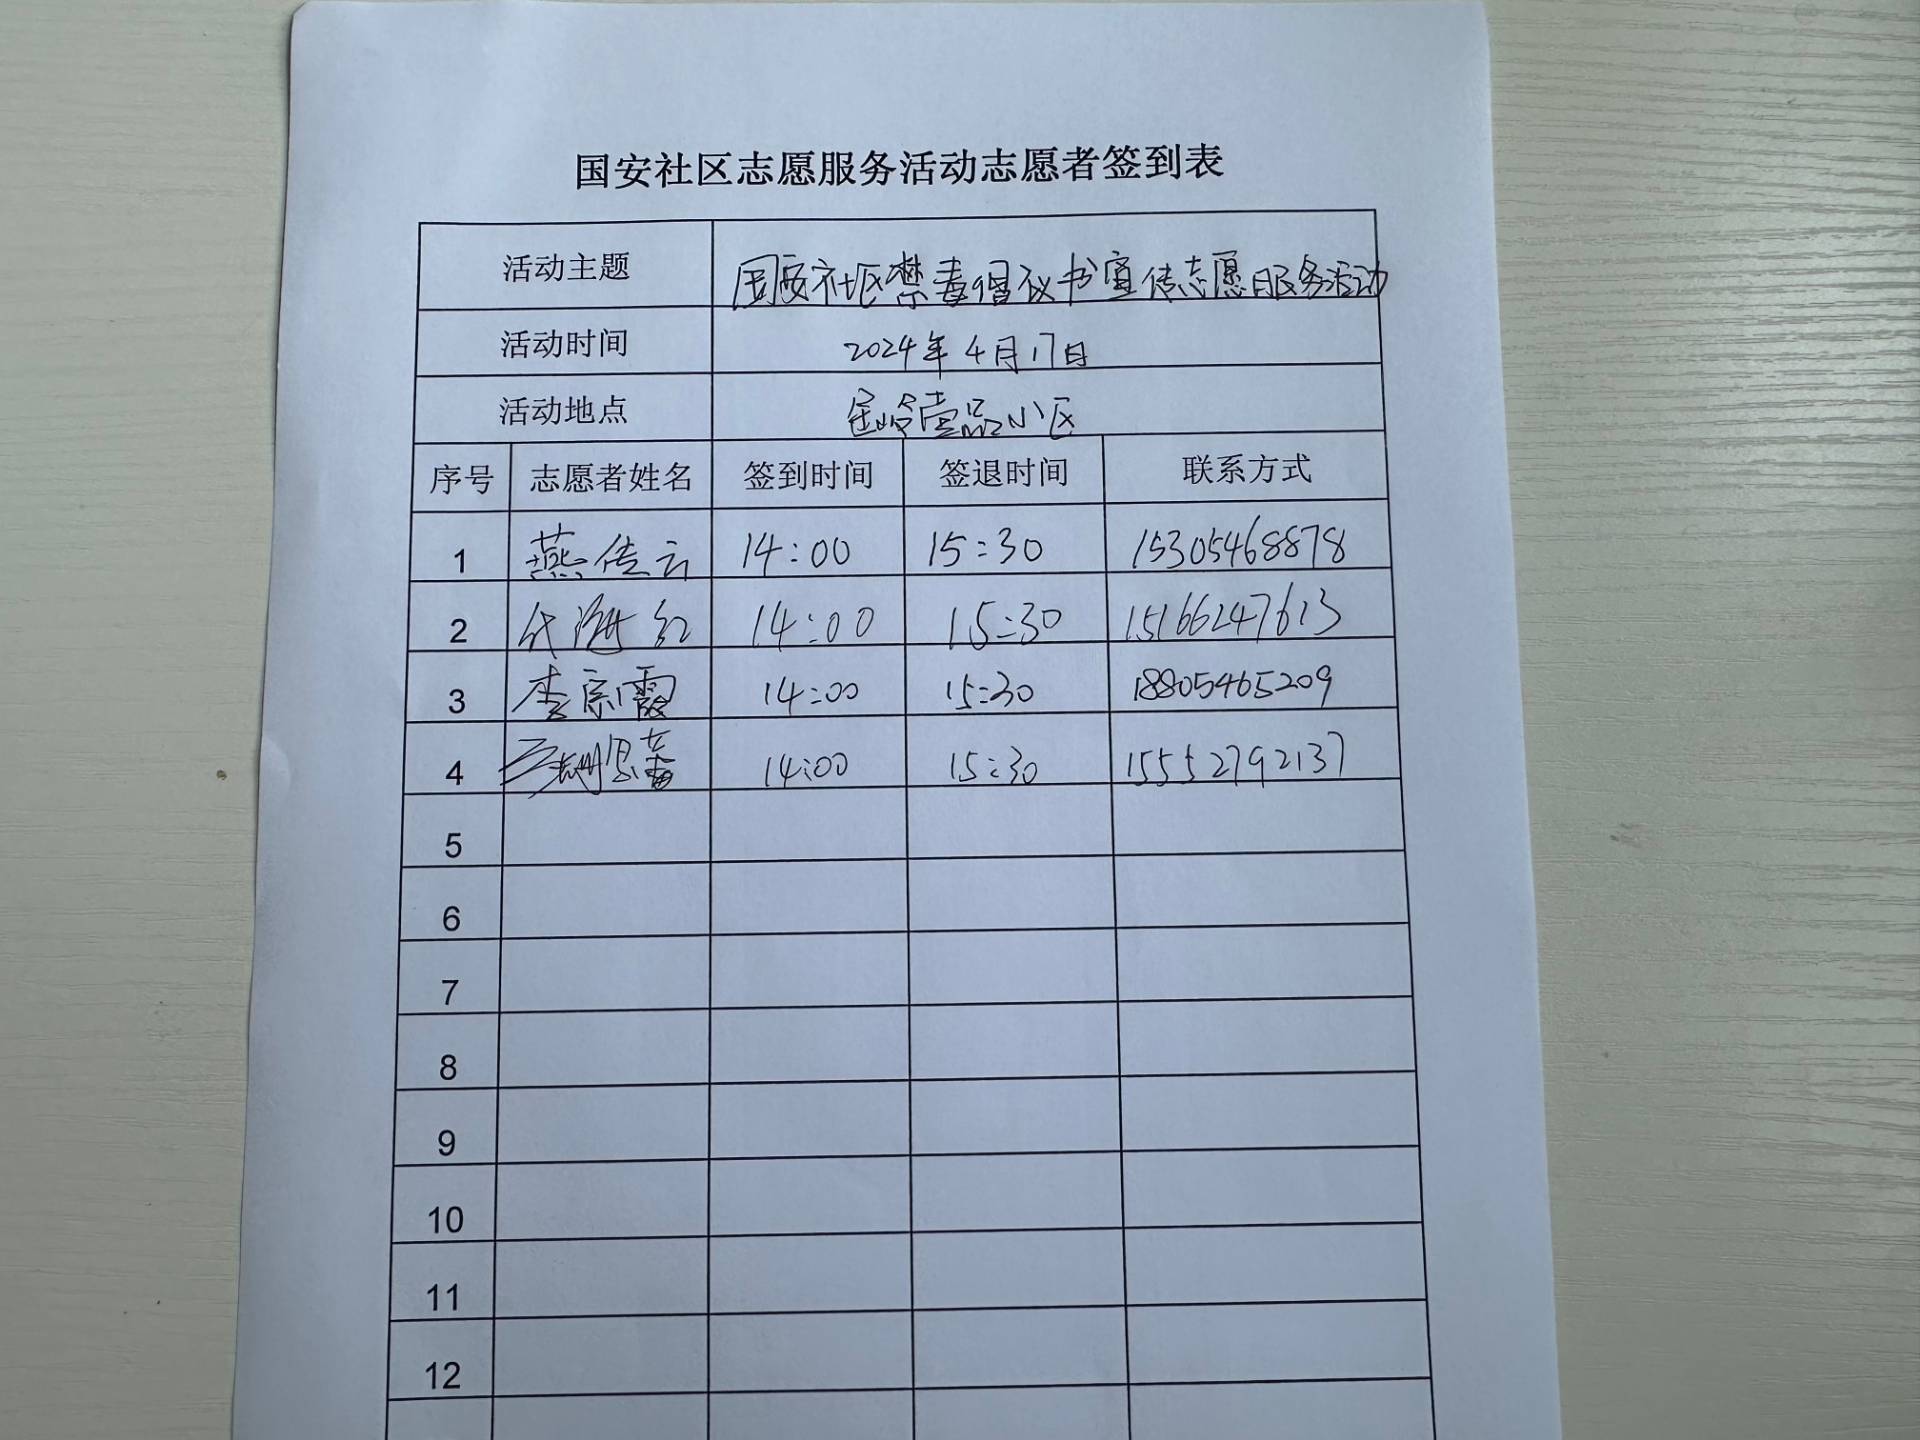 国安社区志愿服务活动志愿者签到表
活动主题 国安社区禁毒倡议书宣传志愿服务活动
活动时间 2024年4月17日
活动地点 金岭壹品小区
序号 志愿者姓名 签到时间 签退时间 联系方式
1 燕传云 14:00 15:30 15305468878
2 代 红 14:00 15:30 15166247613
3 李宗霞 14:00 15:30 18805465209
4 14:00 15:30 15552792137
5
6
7
8
9
10
11
12